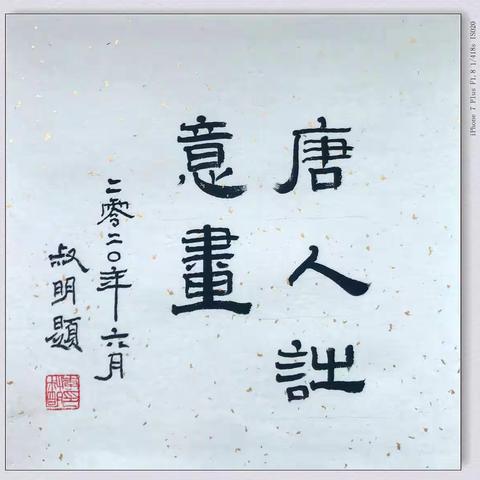 唐人詩
意畫
二零二〇年六月
叔明題
iPhone 7 Plus F1.8 1/418s ISO20